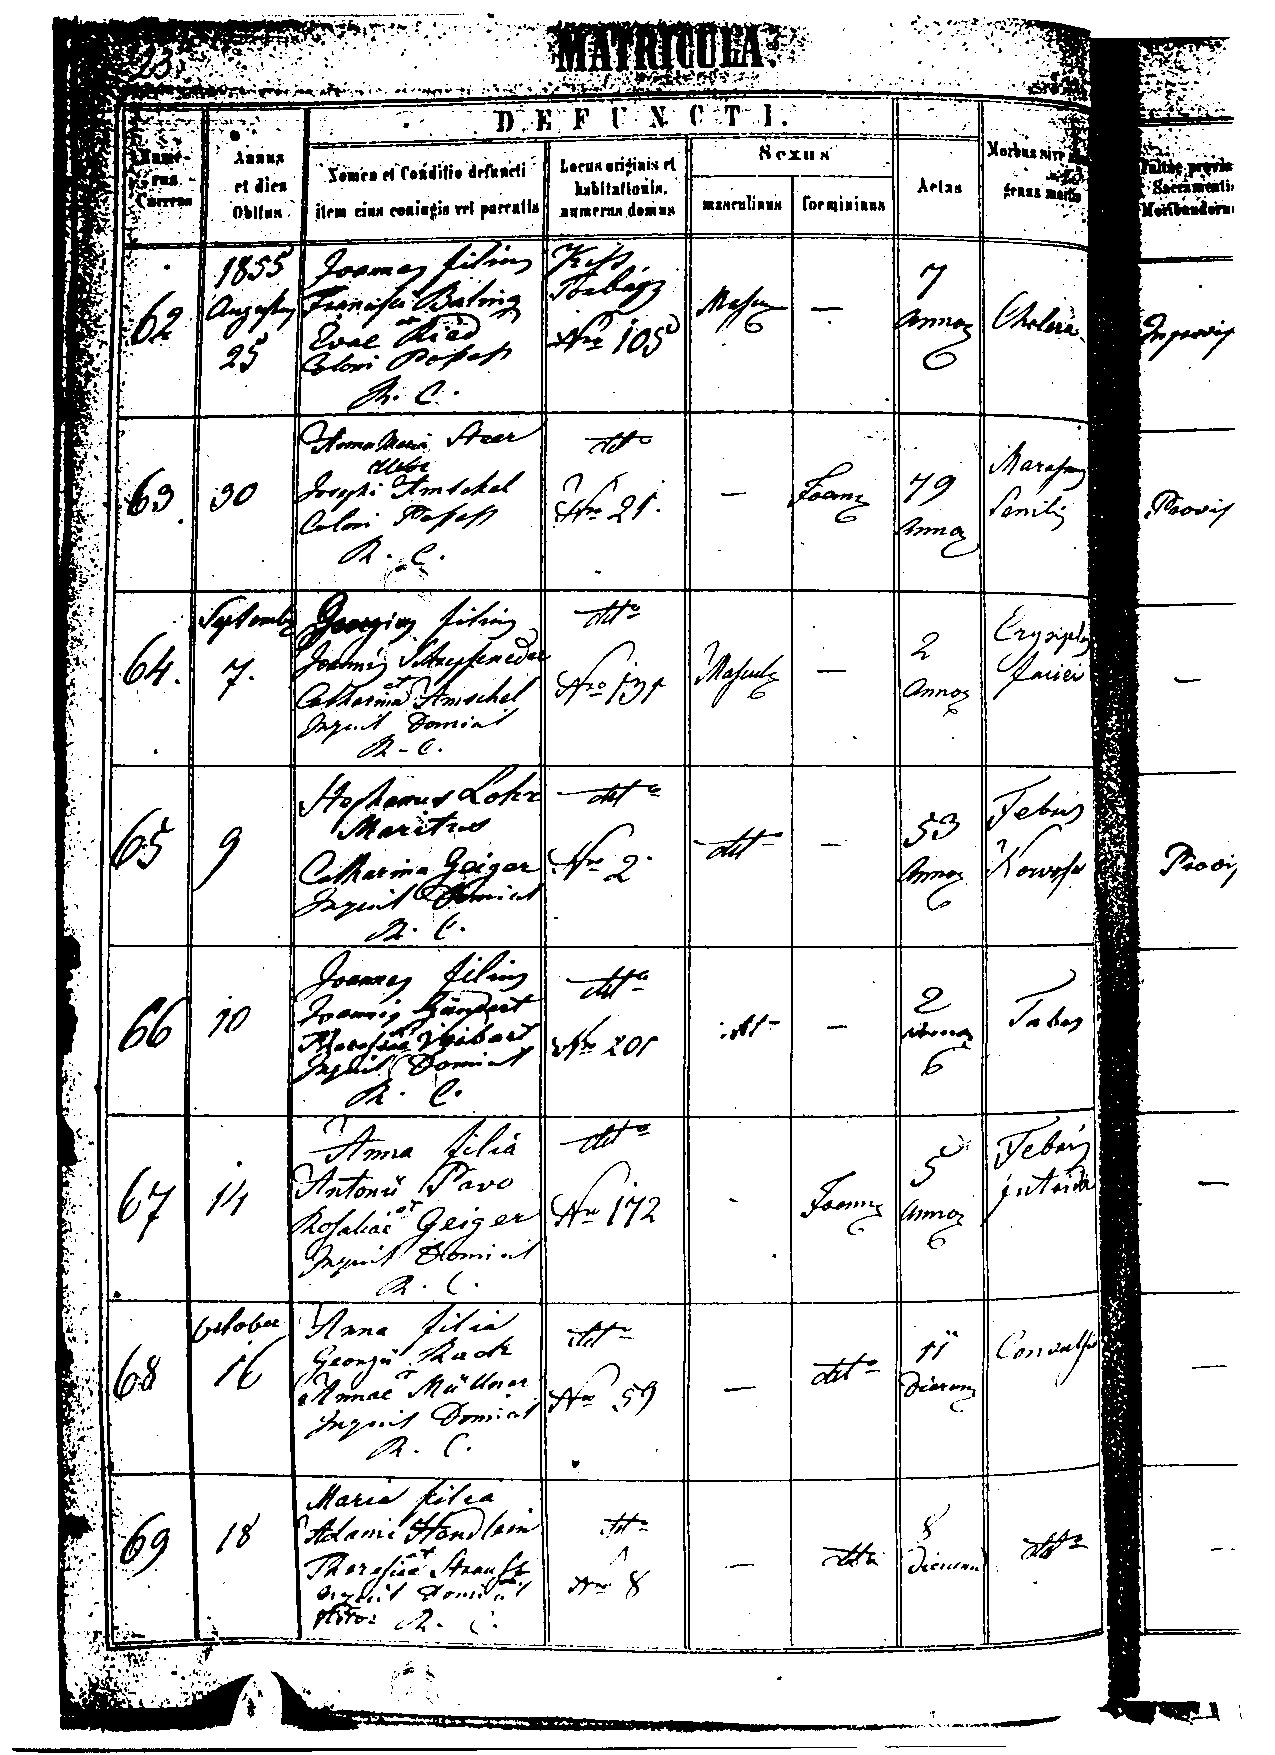 23.
MATRICULA.
DEFUNCTI.
Nume-
rus
Currens
Annus
et dies
Obitus
Nomen et Conditio defuncti
item eius coniugis vel parentis
Locus originis et
habitationis,
numerus domus
Sexus
masculinus
foemininus
Aetas
Morbus sive
genus mortis
provis
Sacramentis
Moribundorum
62
1855
Augustus
25
Joannes filius
Francisci
et
Evae Ried
Coloni Possess
R. C.
Kiss
Torbágy
Nro 105
Mascu
—
7
Annor
Cholera
Improvis
63.
30
Anna Maria Steer
Josephi Amschel
Coloni Possess
R. C.
dtto
Nro 21.
—
Foem
79
Annor
Marasm
Senilis
Provis
64.
September
7.
Georgius filius
Joannis
et
Catharina Amschel
Inquil Domiat
R. C.
dtto
Nro 131
Mascul
—
2
Annor
Erysiplas
faciei
—
65
9
Stephanus Lohr
Maritus
Catharina Geiger
Inquil Domiat
R. C.
dtto
Nro 2.
dtt
—
53
Annor
Febris
Nervosa
Provis
66
10
Joannes filius
Joannis
et
Theresiae
Inquil Domiat
R. C.
dtto
Nro 201
dtt
—
2
Annor
Tabes
67
14
Anna filia
Antonii Pavo
et
Rosaliae Geiger
Inquil Domiat
R. C.
dtto
Nro 172
-
Foemi
5
Annor
Febris
putrida
—
68
October
16
Anna filia
Georgii Rack
et
Annae Müllner
Inquil Domiat
R. C.
dtto
Nro 59
—
dtto
11
Dierum
Convulsio
—
69
18
Maria filia
Adami Hendlein
et
Theresiae Strauss
Inquil Domiat
R. C.
dtto
Nro 8
—
dtto
8
Dierum
dtto
—